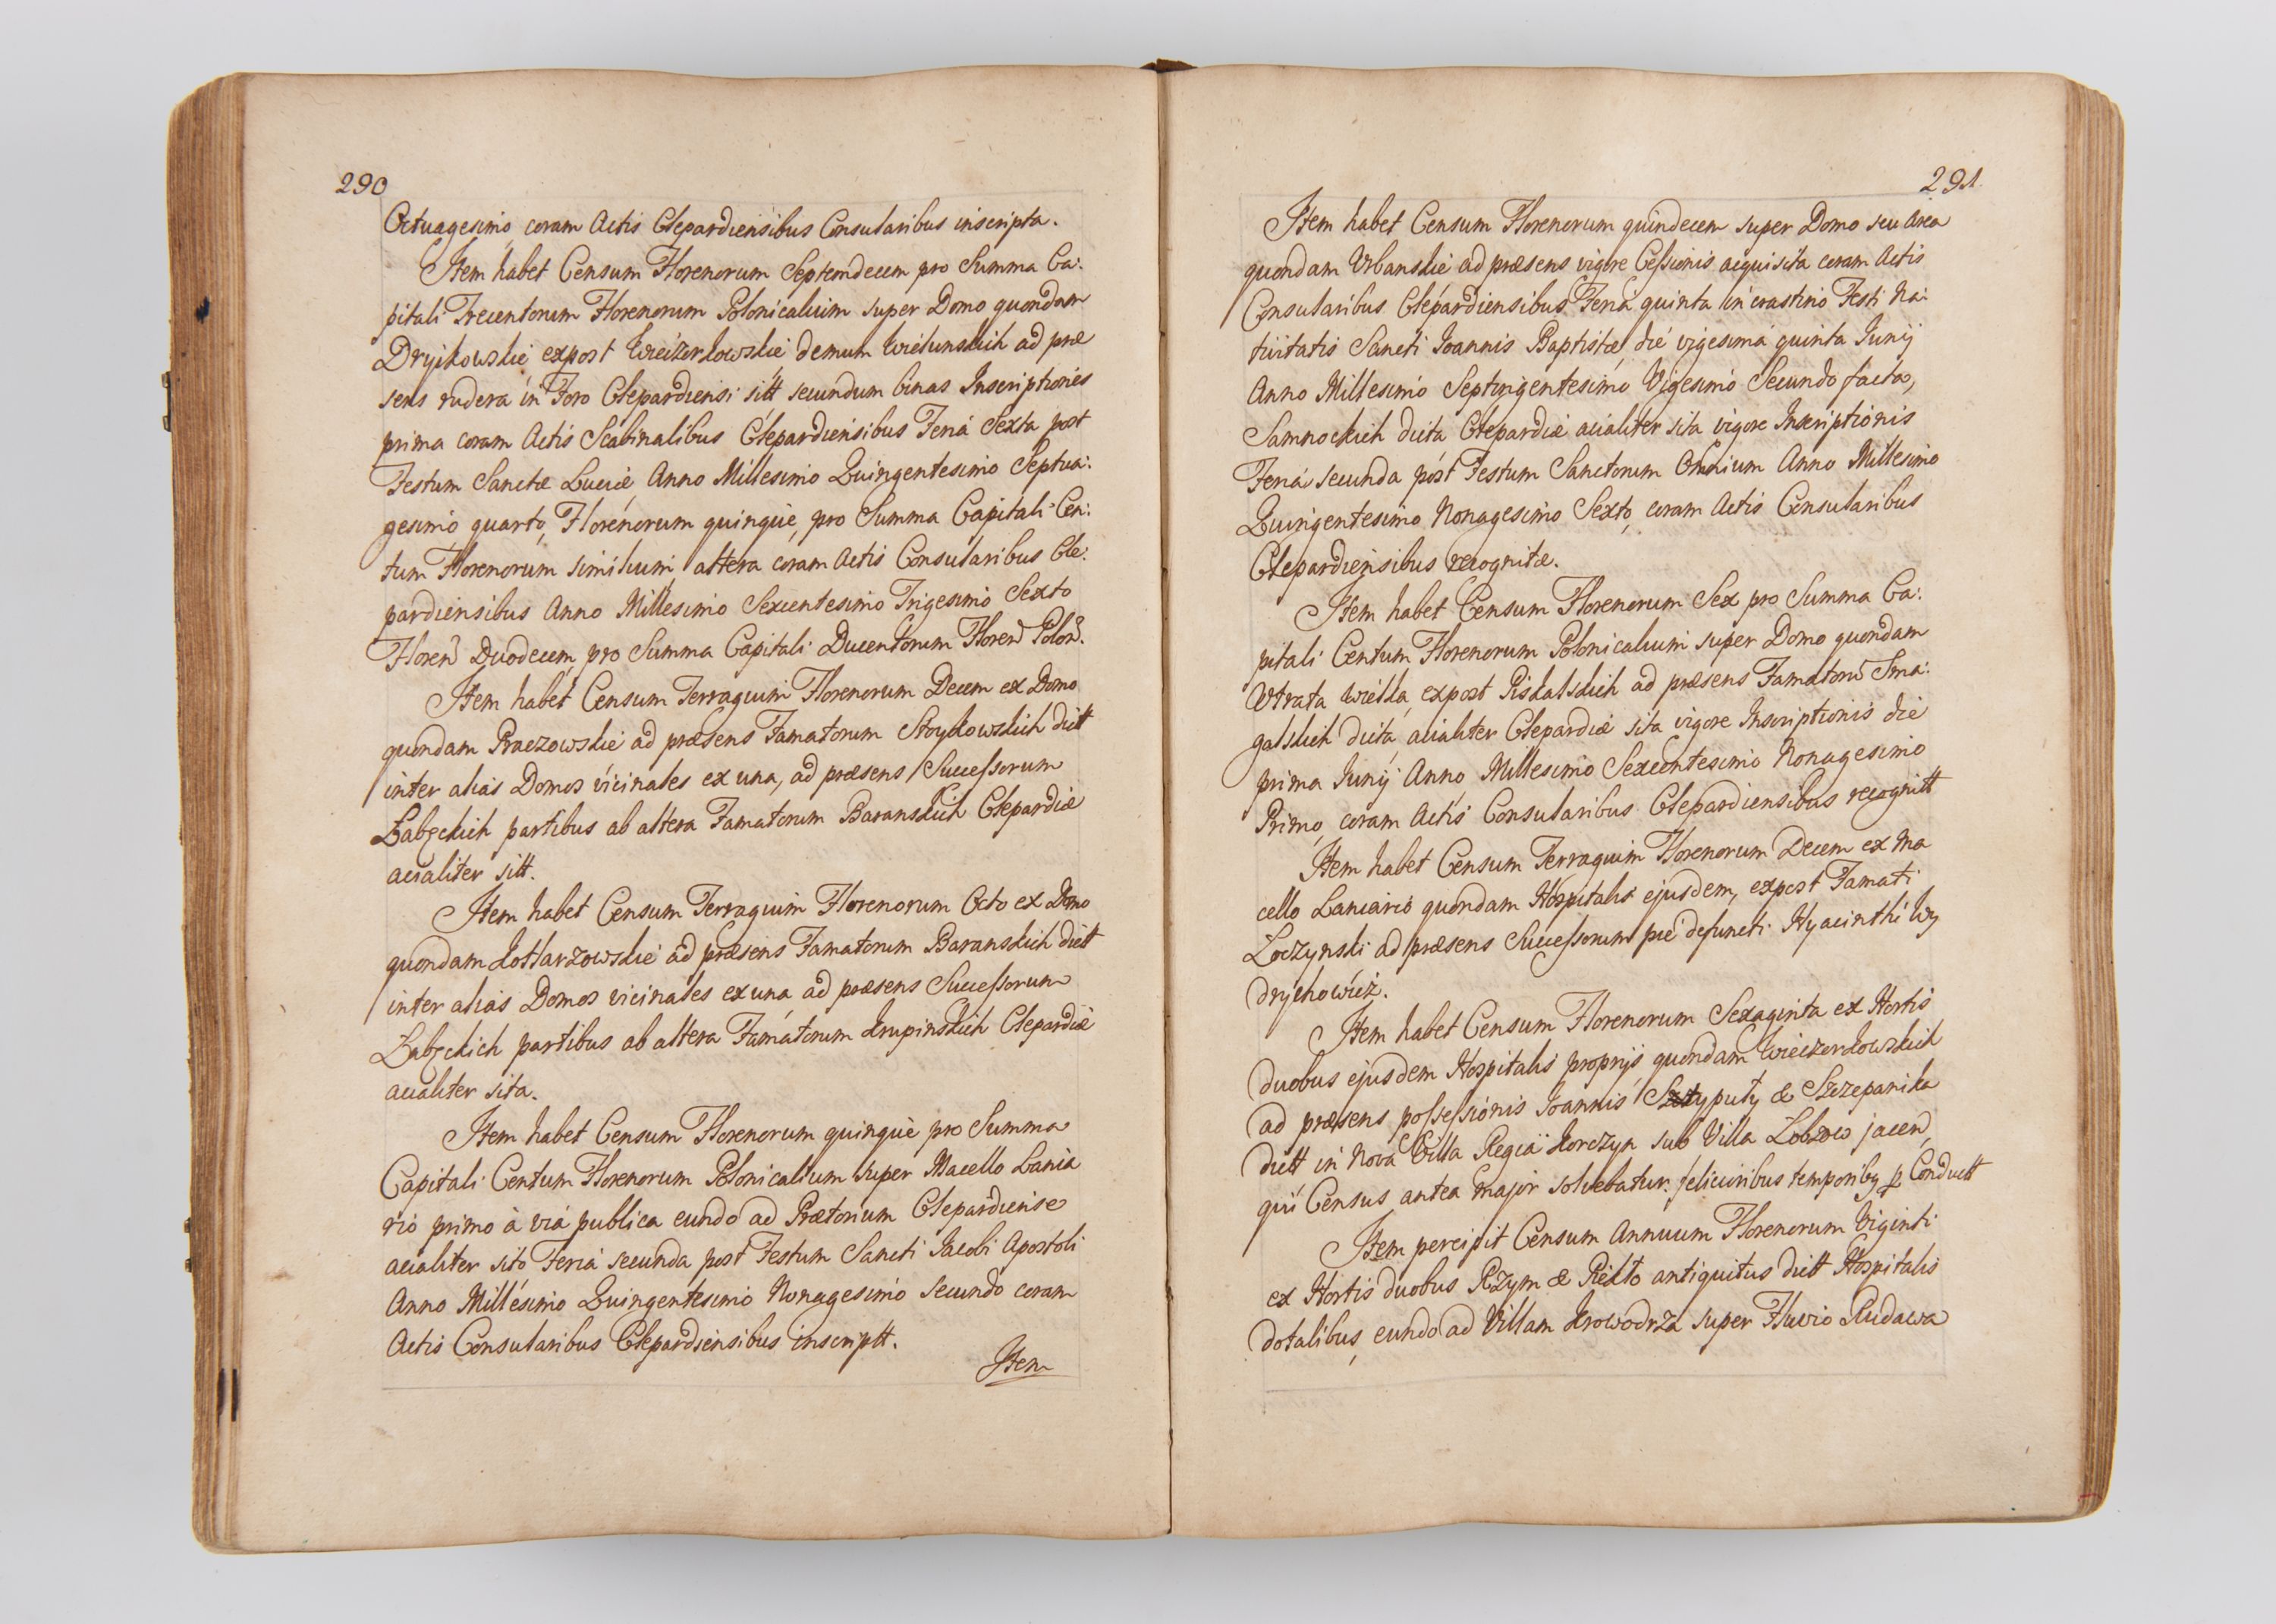 290
Octuagesimo, coram Actis Clepardiensibus Consularibus inscripta.
Item habet Censum Florenorum Septemdecem pro Summa Ca:
pitali Trecentorum Florenorum Polonicalium super Domo quondam
Dryikowskie expost Wieizorkowskie demum Wielunskich ad præ
sens rudera in Foro Clepardiensi sitt secundum binas Inscriptiones
prima coram Actis Scabinalibus Clepardiensibus Feria Sexta post
Festum Sanctæ Luciæ Anno Millesimo Quingentesimo Septua:
gesimo quarto, Florenorum quinque, pro Summa Capitali Cen:
tum Florenorum similium altera coram Actis Consularibus Cle:
pardiensibus Anno Millesimo Sexcentesimo Trigesimo Sexto
Floren Duodecem pro Summa Capitali Ducentorum Floren Polon.
Item habet Censum Terraguim Florenorum Decem ex Domo
quondam Praczowskie ad præsens Famatorum Stoykowskich dictt
inter alias Domos vicinales ex una, ad præsens Successorum
Babeckich partibus ab altera Famatorum Baranskich Clepardiæ
acialiter sitt.
Item habet Censum Terraguim Florenorum Octo ex Domo
quondam Kotlarzowskie ad præsens Famatorum Baranskich dictt
inter alias Domos vicinales ex una ad præsens Successorum
Babeckich partibus ab altera Famatorum Krupinskich Clepardiæ
acialiter sita.
Item habet Censum Florenorum quinque pro Summa
Capitali Centum Florenorum Polonicalium super Macello Lania
rio primo à via publica eundo ad Prætorium Clepardiense
acialiter sito Feria secunda post Festum Sancti Jacobi Apostoli
Anno Millesimo Quingentesimo Nonagesimo secundo coram
Actis Consularibus Clepardiensibus inscriptt.
Item
291
Item habet Censum Florenorum quindecem super Domo seu Area
quondam Urbanskie ad præsens vigore Cessionis acquisita coram Actis
Consularibus Clepardiensibus Feria quinta in crastino Festi Na:
tivitatis Sancti Joannis Baptistæ die vigesima quinta Junij
Anno Millesimo Septingentesimo Vigesimo Secundo facta,
Samnockich dicta Clepardiæ acialiter sita vigore Inscriptionis
Feria secunda post Festum Sanctorum Omnium Anno Millesimo
Quingentesimo Nonagesimo Sexto, coram Actis Consularibus
Clepardiensibus recognitæ.
Item habet Censum Florenorum Sex pro Summa Ca:
pitali Centum Florenorum Polonicalium super Domo quondam
Utrata wielka, expost Piskalskich ad præsens Famatorũ Sma:
galskich dicta acialiter Clepardiæ sita vigore Inscriptionis die
prima Junij Anno Millesimo Sexcentesimo Nonagesimo
Primo, coram Actis Consularibus Clepardiensibus recognitt
Item habet Censum Terraguim Florenorum Decem ex Ma
cello Laniario quondam Hospitalis ejusdem, expost Famati
Loczynski ad præsens Successorum pie defuncti Hyacinthi Wy
drychowicz.
Item habet Censum Florenorum Sexaginta ex Hortis
duobus ejusdem Hospitalis proprijs quondam Wieczorkowskich
ad præsens possessionis Joannis Szczyputy & Szczepanika
dictt in Nova Villa Regia Korczyn sub Villa Lobzow jacen,
qui Census antea major solvebatur felicioribus temporibq p Conductt
Item percipit Censum Annuum Florenorum Viginti
ex Hortis duobus Rzym & Piekło antiquitus dictt Hospitalis
dotalibus, eundo ad Villam Krowodrza super Fluvio Rudawa